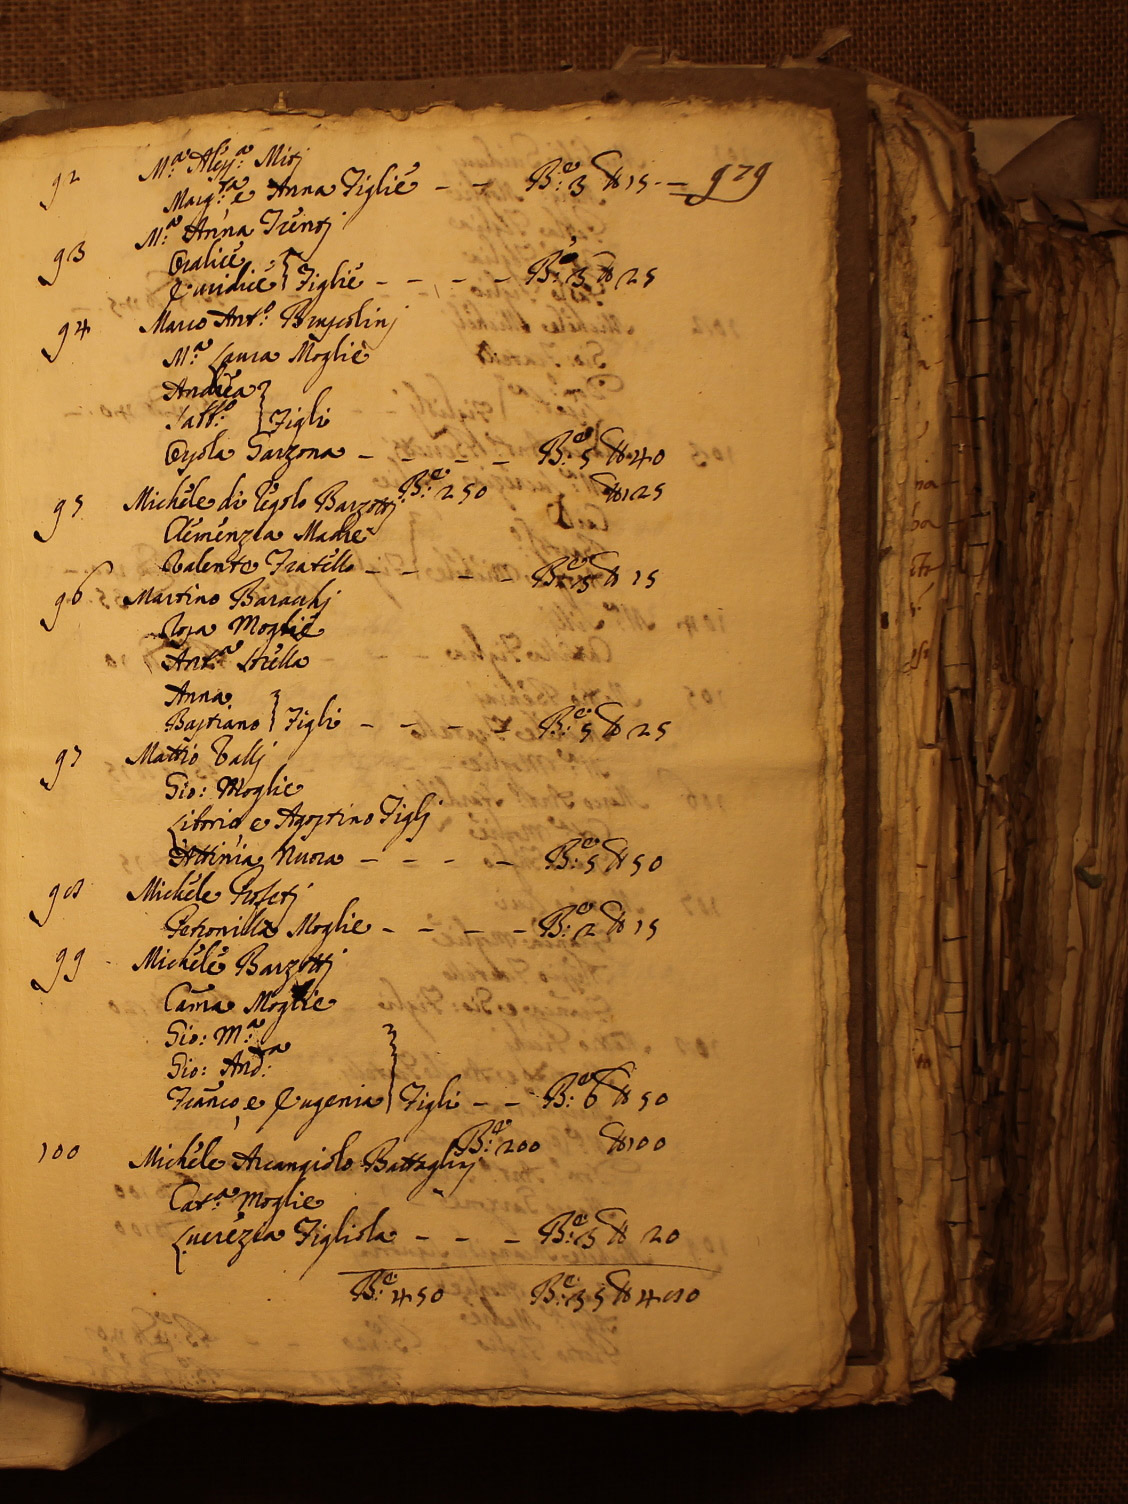 92 M.ª Aless.ª Mitj
Marg.ta e Anna Figlie - - B.e: 3 ₶ 15 - 979
93 M.ª Anna Trentj
Oralice
Euridice } Figlie - - - - B.e: 3 ₶ 25
94 Marco Ant.º
M.ª Laura Moglie
Andrea
Fatt.º } Figli
Orsola Garzona - - - - B.e: 5 ₶ 40
95 Michele di Pegolo Barzottj B.e: 250 ₶ 125
Clemenzia Madre
Valente Fratello - - - - B.e: 3 ₶ 15
96 Martino Baracchj
Rosa Moglie
Ant.ª Sorella
Anna
Bastiano } Figli - - - - B.e: 5 ₶ 25
97 Mattio Vallj
Gio: Moglie
Liboria e Agostino Figlj
Attinia Nuora - - - - B.e: 5 ₶ 50
98 Michele
Petronilla Moglie - - - - B.e: 2 ₶ 15
99 Michele Barzottj
Moglie
Gio: M.ª
Gio: And.ª
Franco, e Eugenia } Figli - - B.e: 6 ₶ 50
100 Michele Arcangiolo Battaglinj B.e: 200 ₶ 100
Cat.ª Moglie
Lucrezia Figliola - - - B.e: 3 ₶ 20
B.e: 450 B.e: 35 ₶